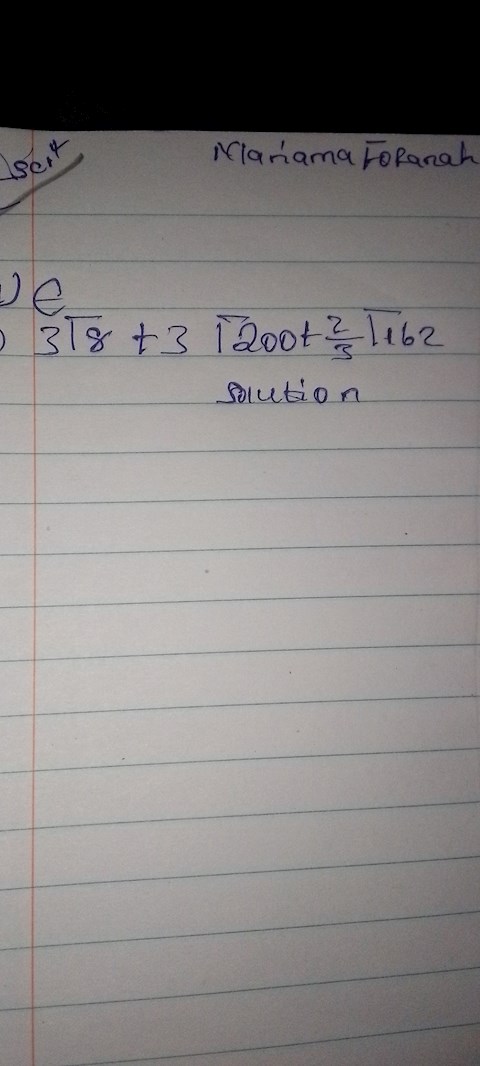 Mariama Foranah
) e
) 3√8 + 3 √200 + 2/3 √162
Solution